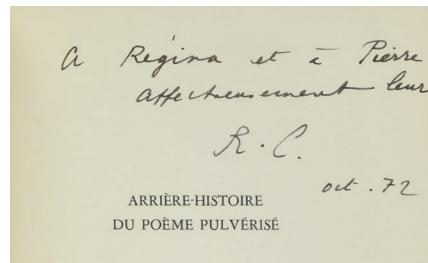 A Régina et à Pierre
affectueusement leur
R. C.
oct. 72
ARRIÈRE-HISTOIRE
DU POÈME PULVÉRISÉ